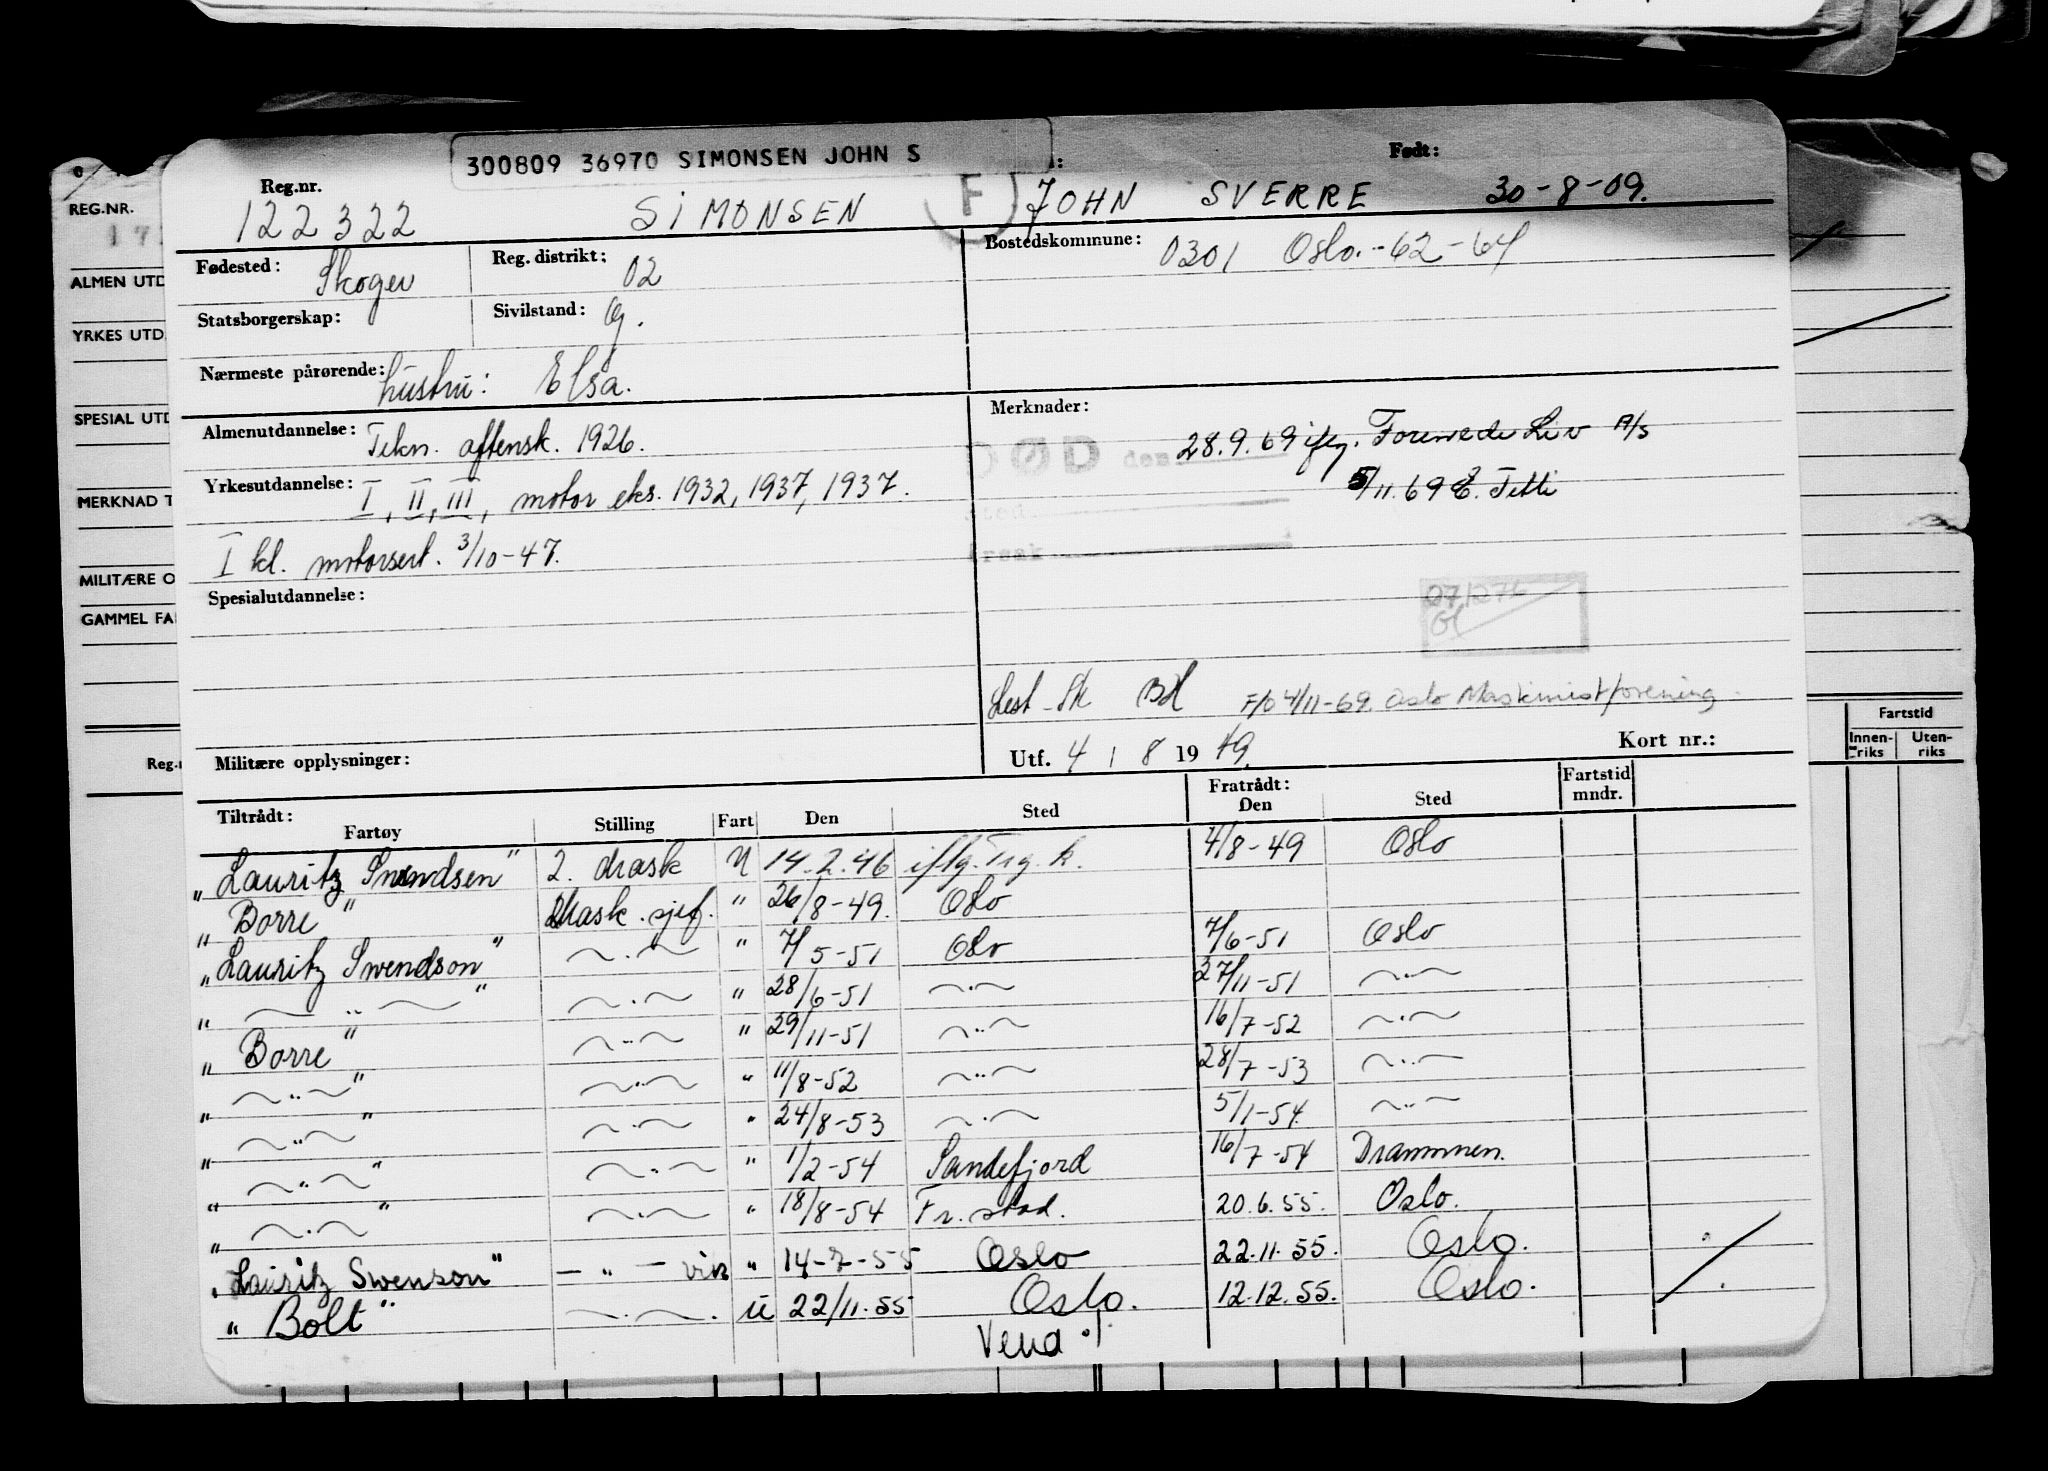 300809 36970 SIMONSEN JOHN S
Født:
REG.NR. Reg.nr.
122322 SIMONSEN F JOHN SVERRE 30-8-09.
Fødested: Skoger Reg. distrikt: 02 Bostedskommune: 0301 Oslo.-62-64
ALMEN UTD
Statsborgerskap: Sivilstand: G.
YRKES UTD.
Nærmeste pårørende: hustru: Elsa.
SPESIAL UTD
Almenutdannelse: Tekn. aftensk. 1926. Merknader:
28.9.69 iflg. Forenede Liv A/S
DØD den
Yrkesutdannelse: I, II, III, motor eks. 1932, 1937, 1937.
5/11.69 Tetli
MERKNAD T
Sted
I kl. motorsert. 3/10-47.
årsak
MILITÆRE O
Spesialutdannelse:
071276
GAMMEL FA
Lest Sk BH F/O 4/11-69. Oslo Maskinistforening
Militære opplysninger: Utf. 4 / 8 19 49. Kort nr.:
Fartstid
Innen-riks Uten-riks
Reg.n
Tiltrådt: Fratrådt: Fartstid mndr.
Fartøy Stilling Fart Den Sted Den Sted
"Lauritz Swendsen" 2. mask U 14.2.46 iflg. Trg. k. 4/8-49 Oslo
"Borre" Mask. sjef. " 26/8-49. Oslo
"Lauritz Swendson" ~.~ " 7/5-51 Oslo 7/6-51 Oslo
" ~ .. ~ " ~.~ " 28/6-51 ~.~ 27/11-51 ~.~
"Borre" ~..~ " 29/11-51 ~..~ 16/7-52 ~.~
" ~..~ " ~.~ " 11/8-52 ~..~ 28/7-53 ~..~
" ~..~ " ~.~ " 24/8-53 ~.~ 5/1-54. ~..~
" ~..~ " ~.~ " 1/2-54 Sandefjord 16/7-54 Drammen.
" ~.~ " ~.~ " 18/8-54 Fr. stad. 20.6.55. Oslo.
"Lauritz Swenson" — " — vik " 14-7-55 Oslo 22.11.55. Oslo.
"Bolt" ~.~. U 22/11.55 Oslo. 12.12.55. Oslo.
Vend